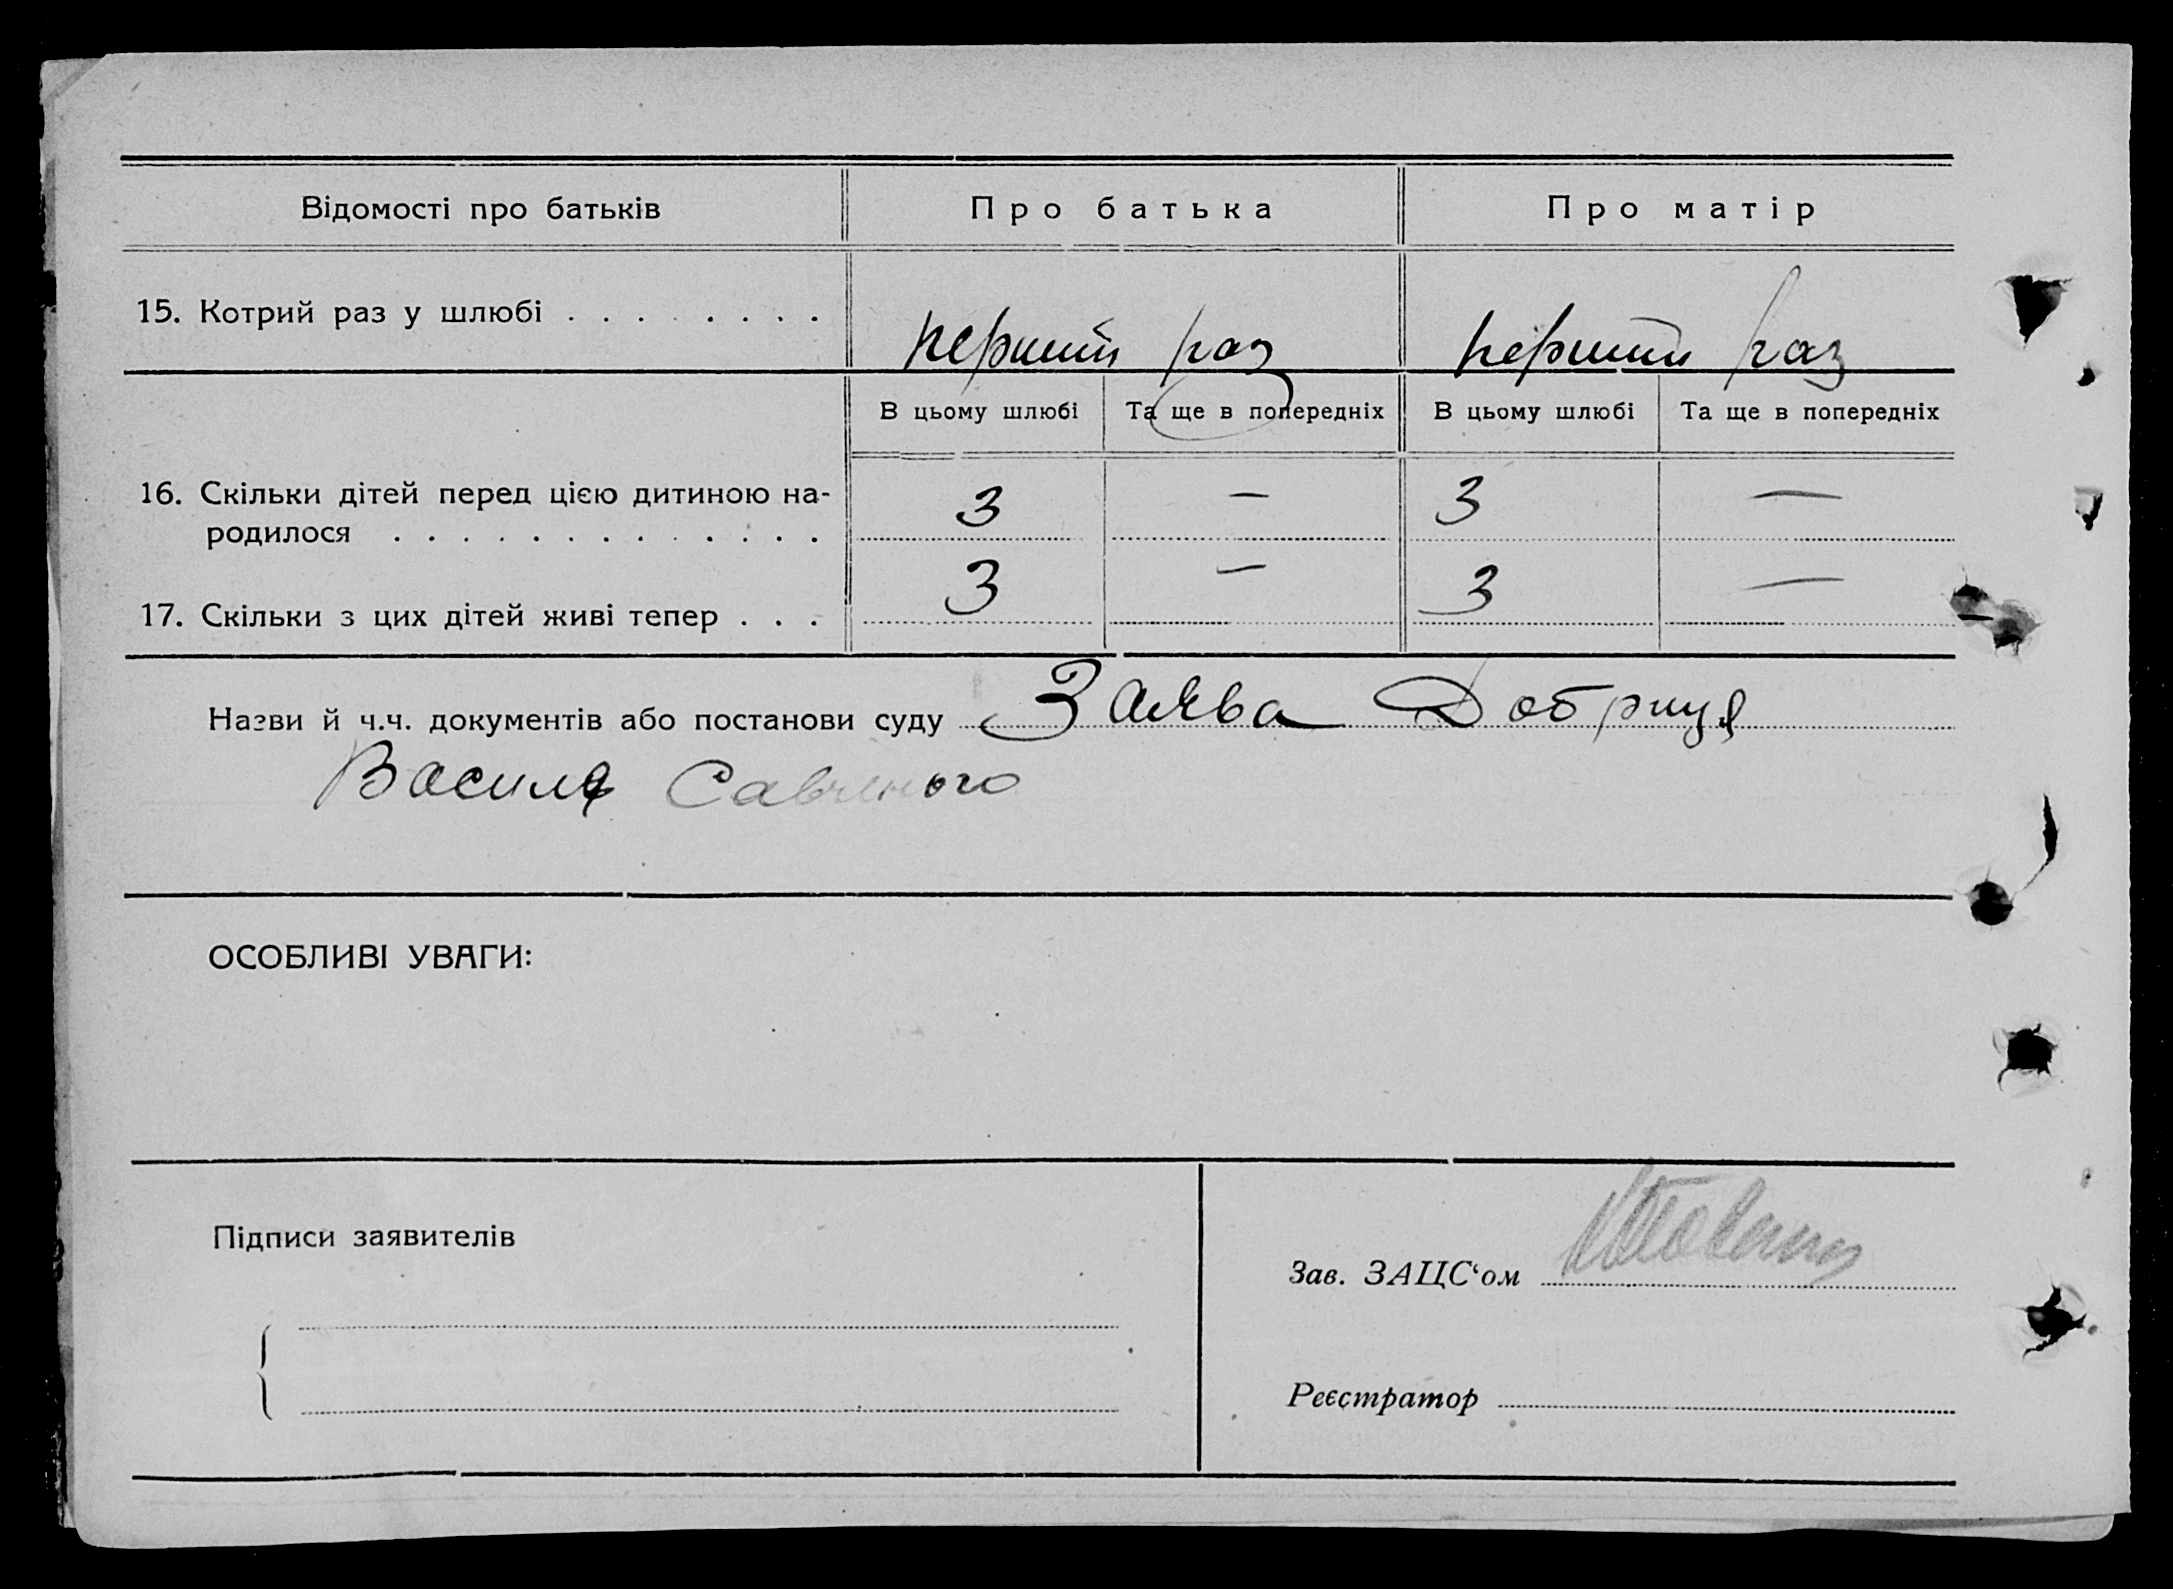 Відомості про батьків Про батька Про матір
15. Котрий раз у шлюбі . . . . . . . . перший раз перший раз
В цьому шлюбі Та ще в попередніх В цьому шлюбі Та ще в попередніх
16. Скільки дітей перед цією дитиною на-
родилося . . . . . . . . . . . . . 3 — 3 —
17. Скільки з цих дітей живі тепер . . . 3 — 3 —
Назви й ч.ч. документів або постанови суду Заява Добриця
Василя
ОСОБЛИВІ УВАГИ:
Підписи заявителів
Зав. ЗАЦС‘ом
Реєстратор